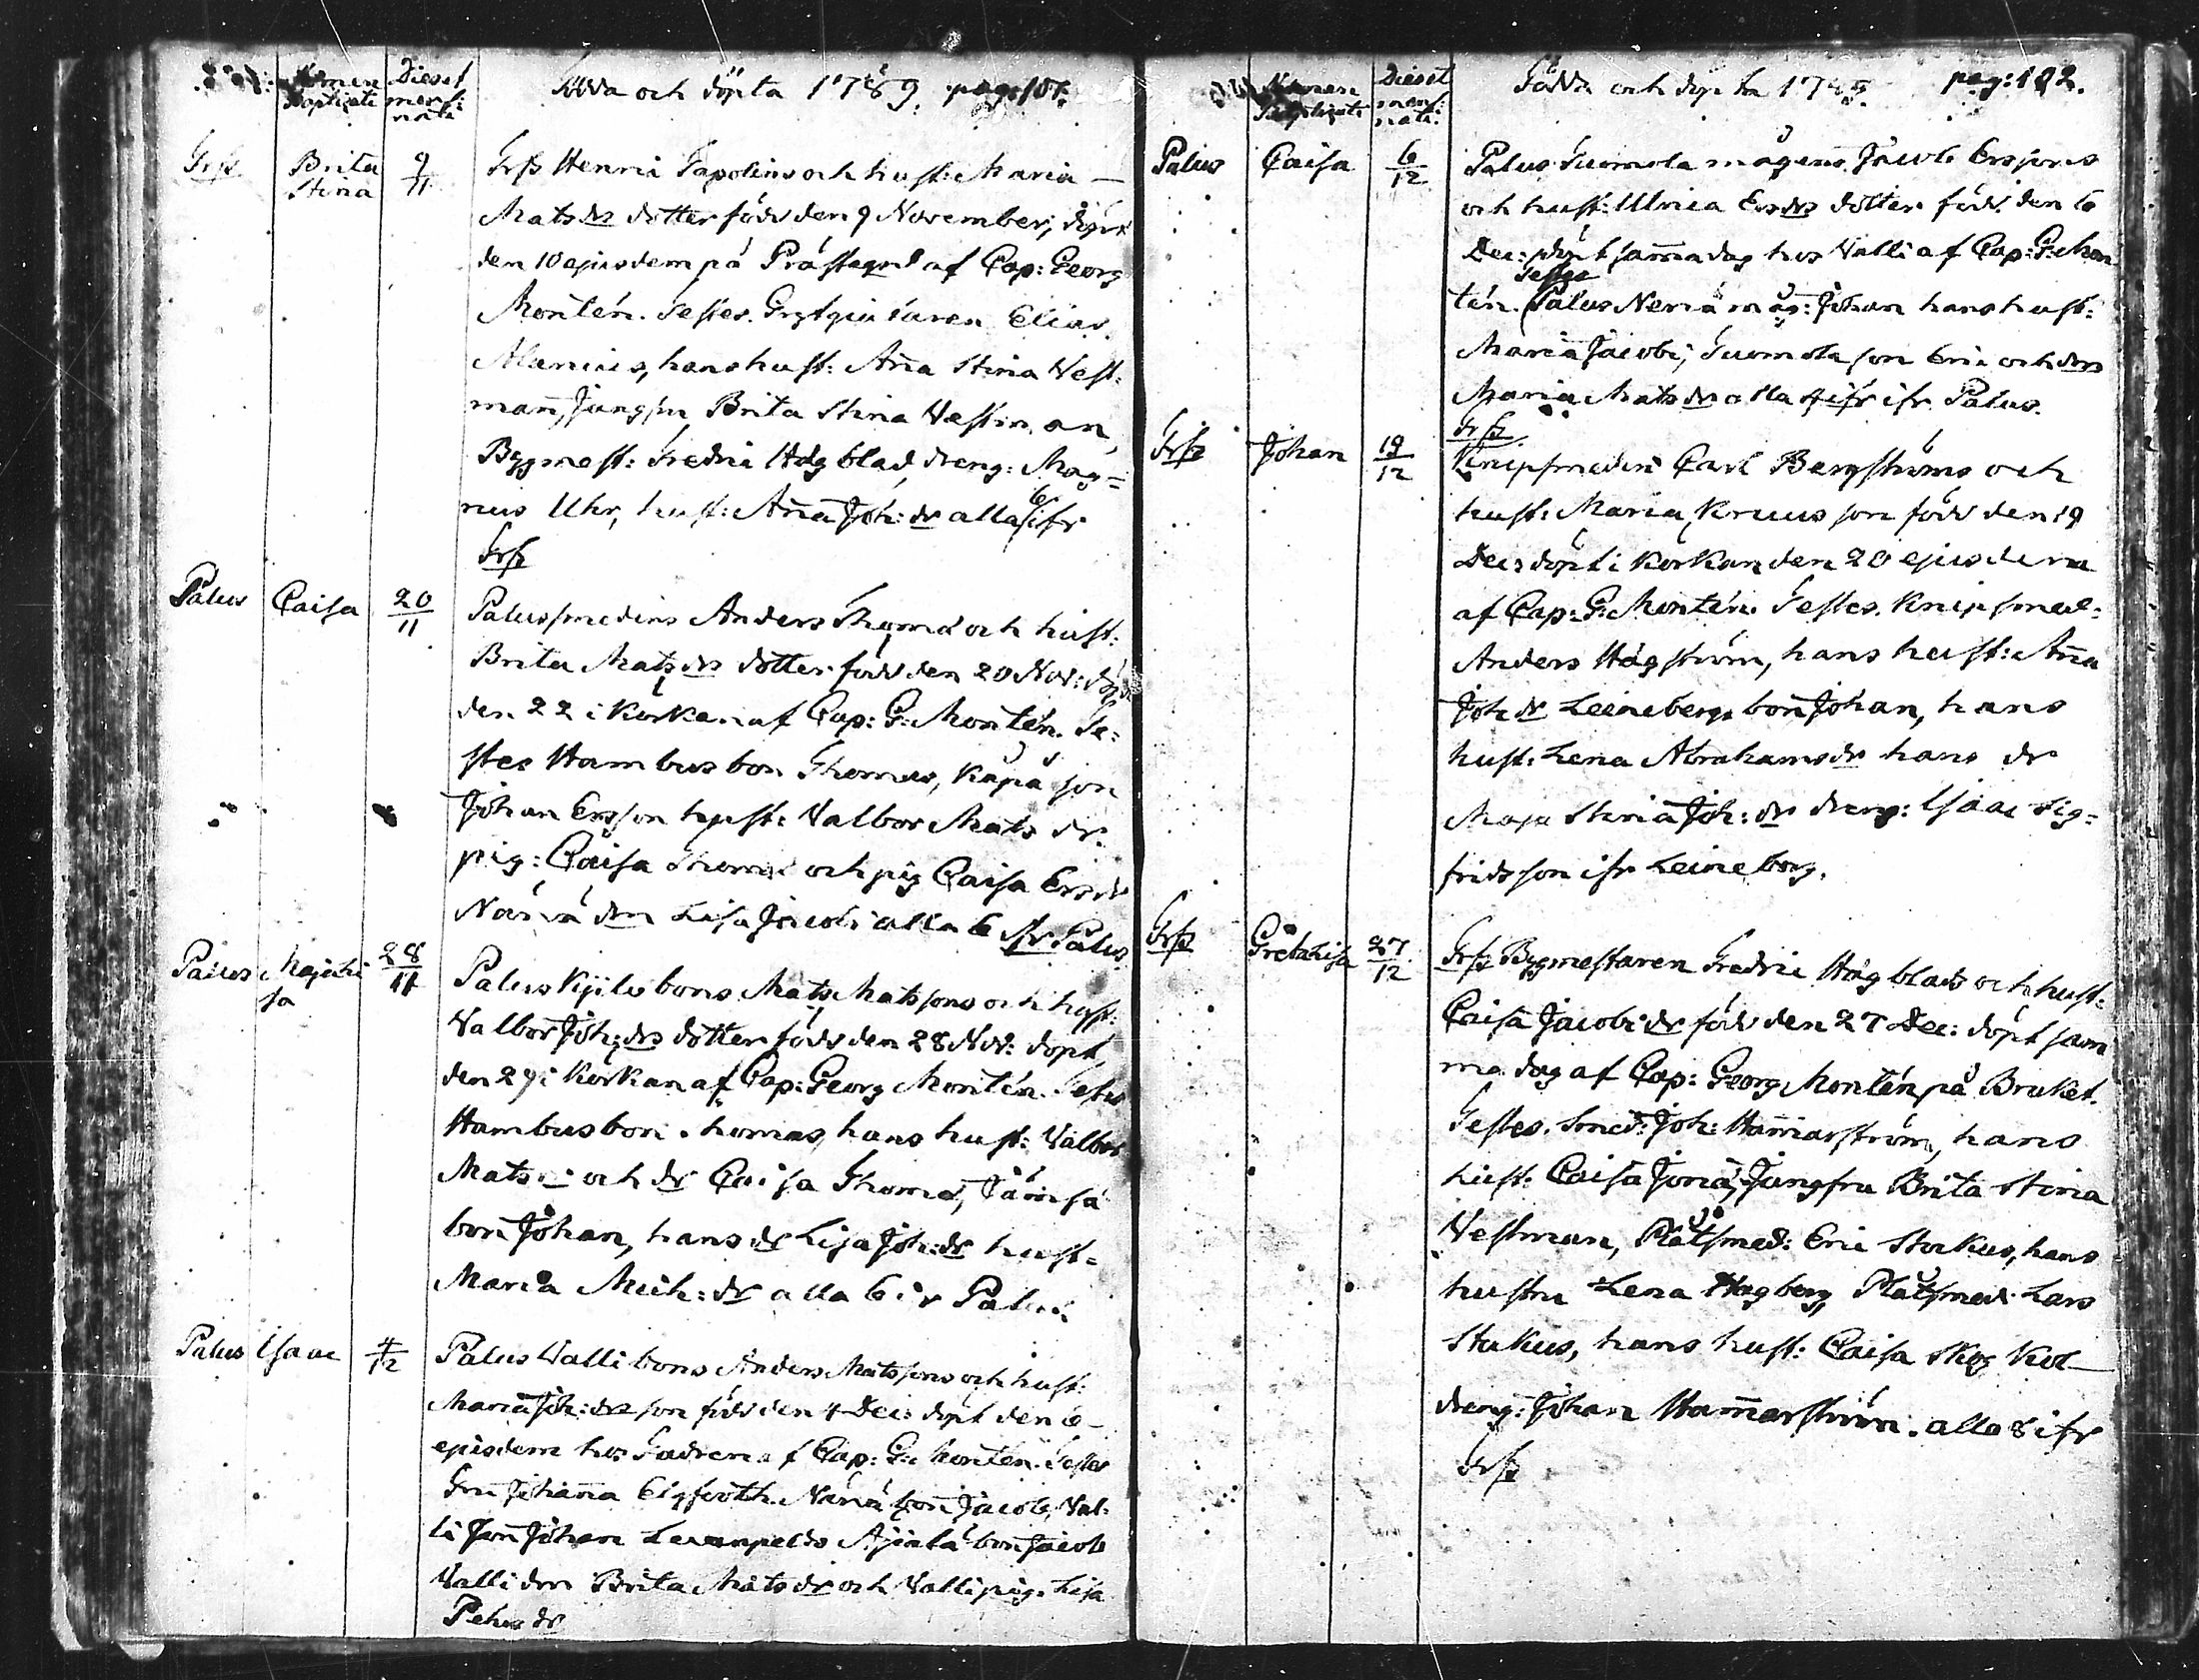 Nomen Baptizati
Dies et mens: nati
Födda och döpta 1789. pag: 101.
Grfs Brita Stina 9/11
Grfs Henric Tapolins och hust: Maria
Mats drs dotter född den 9 November, döpt
den 10 ejusdem på Prästegrd af Cap: Georg
Montén. Testes. Elias
Alenius, hans hust: Ana Stina Vest:
man, Jungfru Brita Stina Vestman,
Bygmest: Fredric Högblad, dreng: Mag=
nus Uhr, hust: Ana Joh: dr alla 6 ifr
Grfs
Palus Caisa 20/11
Palus smedens Anders Thomæ och hust:
Brita Mats drs dotter född den 20 Nov: döpt
den 22 i Kyrkan af Cap: G: Montén. Te=
stes Hambusbon Thomas, Käpä son
Johan Ersson hust: Valbor Mats dr.
pig: Caisa Thomæ och pig Caisa Ers dr
Närvä drn Lisa Jacobi alla 6 ifr Palus.
Palus Maja Lisa 28/11
Palus Kyilo bons Mats Matsons och hust:
Valbor Joh: drs dotter född den 28 Nov: döpt
den 29 i Kyrkan af Cap: Georg Montén. Testes
Hambusbon Thomas, hans hust: Valbor
Mats dr och dr Caisa Thomæ, Jämsä
bon Johan, hans dr Lisa Joh: dr hust=
Maria Mich: dr alla 6 ifr Palus.
Palus Isaac 4/12
Palus Valli bons Anders Matsons och hust:
Maria Joh: drs son född den 4 Dec: döpt den 6
ejusdem hos Fadren af Cap: G: Montén. Testes
Johanna Elgfooth. Närvä bon Jacob, Val=
li son Johan Ajiala bon Jacob
Valli drn Brita Mats dr och Valli pig. Lisa
Pehrs dr
Nomen Baptizati
Dies et mens: nati.
Födda och döpta 1789. pag: 102.
Palus Caisa 6/12
Palus Suomela mågens Jacob Erssons
och hust: Ulrica Ers drs dotter född den 6
Dec: döpt samma dag hos Valli af Cap: G: Mon
tén. Testes Palus Nerva måg: Johan hans hust:
Maria Jacobi, Suomela son Eric och drn
Maria Mats dr alla ifr Palus.
Grfs Johan 19/12
Grfs.
Knipsmeden Carl Bergströms och
hust: Maria Kruus son född den 19
Dec: döpt i Kyrkan den 20 ejusdem
af Cap: G: Montén. Testes. Knipsmed:
Anders Högström, hans hust: Ana
Joh dr Leinebergs bon Johan, hans
hust: Lena Abrahams dr hans dr
Maja Stina Joh: dr dreng: Isaac Sig=
fridsson ifr Leineberg.
Grfs Greta Lisa 27/12
Grfs Bygmestaren Fredric Högblads och hust:
Caisa Jacobi dr född den 27 Dec: döpt sam
ma dag af Cap: Georg Montén på Bruket.
Testes. Smed: Joh: Hamarström, hans
hust: Caisa Jonæ, Jungfru Brita Stina
Vestman, Plåtsmed: Eric Stukus, hans
hustru Lena Hagberg, Plåtsmed: Lars
Stukus, hans hust: Caisa Skog Kol
dreng: Johan Hamarström. alla 8 ifr
Grfs